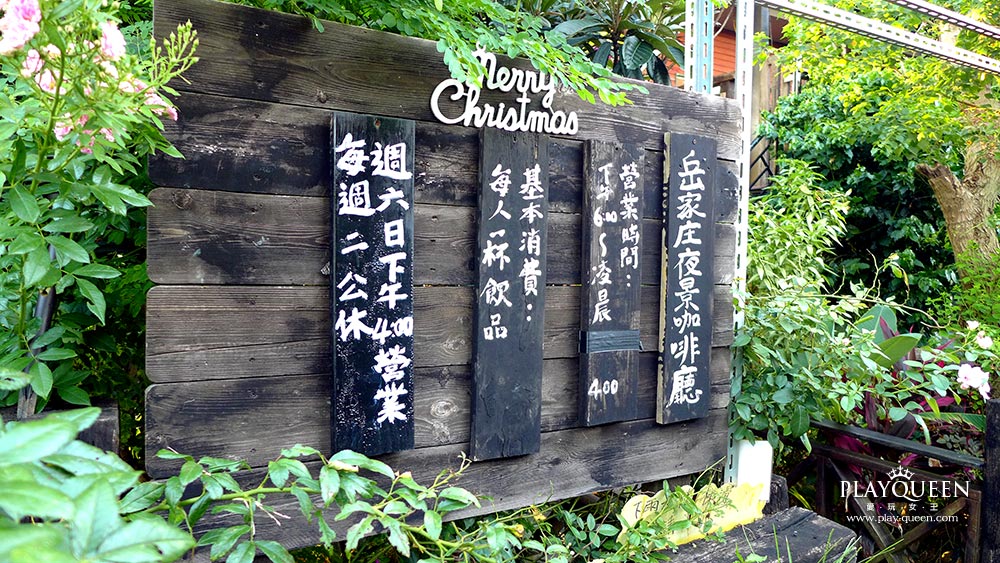 Merry
Christmas
岳家庄夜景咖啡廳
營業時間：
下午6:00～凌晨
4:00
基本消費：
每人一杯飲品
週六日下午4:00營業
每週二公休
PLAYQUEEN
愛·玩·女·王
www.play-queen.com